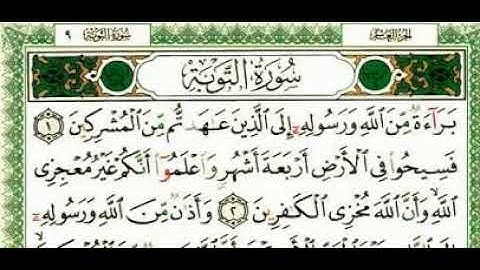 سُورَةُ التَّوْبَةِ ٩ الجزء العاشر
سُورَةُ التَّوْبَةِ
بَرَاءَةٌ مِّنَ اللَّهِ وَرَسُولِهِ إِلَى الَّذِينَ عَاهَدتُّم مِّنَ الْمُشْرِكِينَ ١
فَسِيحُوا فِي الْأَرْضِ أَرْبَعَةَ أَشْهُرٍ وَاعْلَمُوا أَنَّكُمْ غَيْرُ مُعْجِزِي
اللَّهِ وَأَنَّ اللَّهَ مُخْزِي الْكَافِرِينَ ٢ وَأَذَانٌ مِّنَ اللَّهِ وَرَسُولِهِ